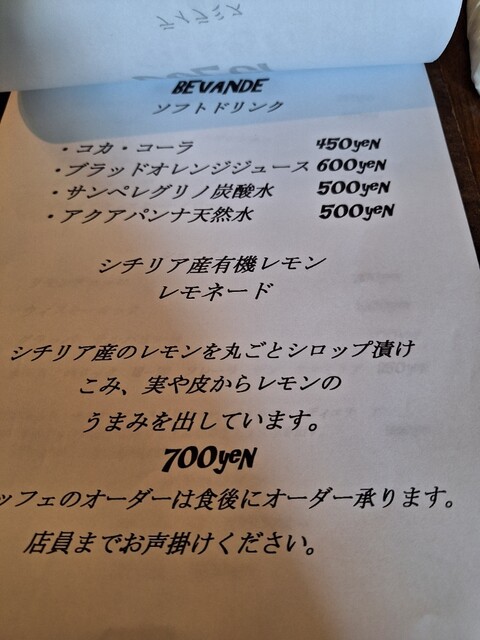 BEVANDE
ソフトドリンク
・コカ・コーラ 450yeN
・ブラッドオレンジジュース 600yeN
・サンペレグリノ炭酸水 500yeN
・アクアパンナ天然水 500yeN
シチリア産有機レモン
レモネード
シチリア産のレモンを丸ごとシロップ漬け
こみ、実や皮からレモンの
うまみを出しています。
700yeN
ッフェのオーダーは食後にオーダー承ります。
店員までお声掛けください。